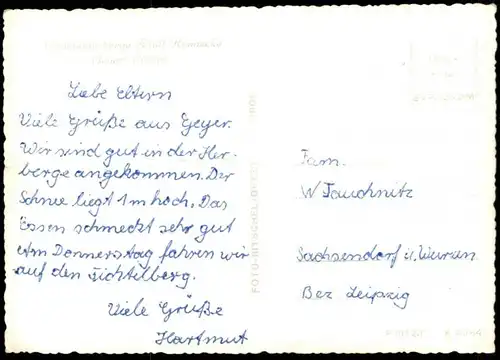 Liebe Eltern
Viele Grüße aus Geyer.
Wir sind gut in der Her-
berge angekommen. Der
Schnee liegt 1m hoch. Das
Essen schmeckt sehr gut
Am Donnerstag fahren wir
auf den Fichtelberg.
Viele Grüße
Hartmut
Fam.
W Tauchnitz
Sachsendorf ü. Wurzen
Bez Leipzig